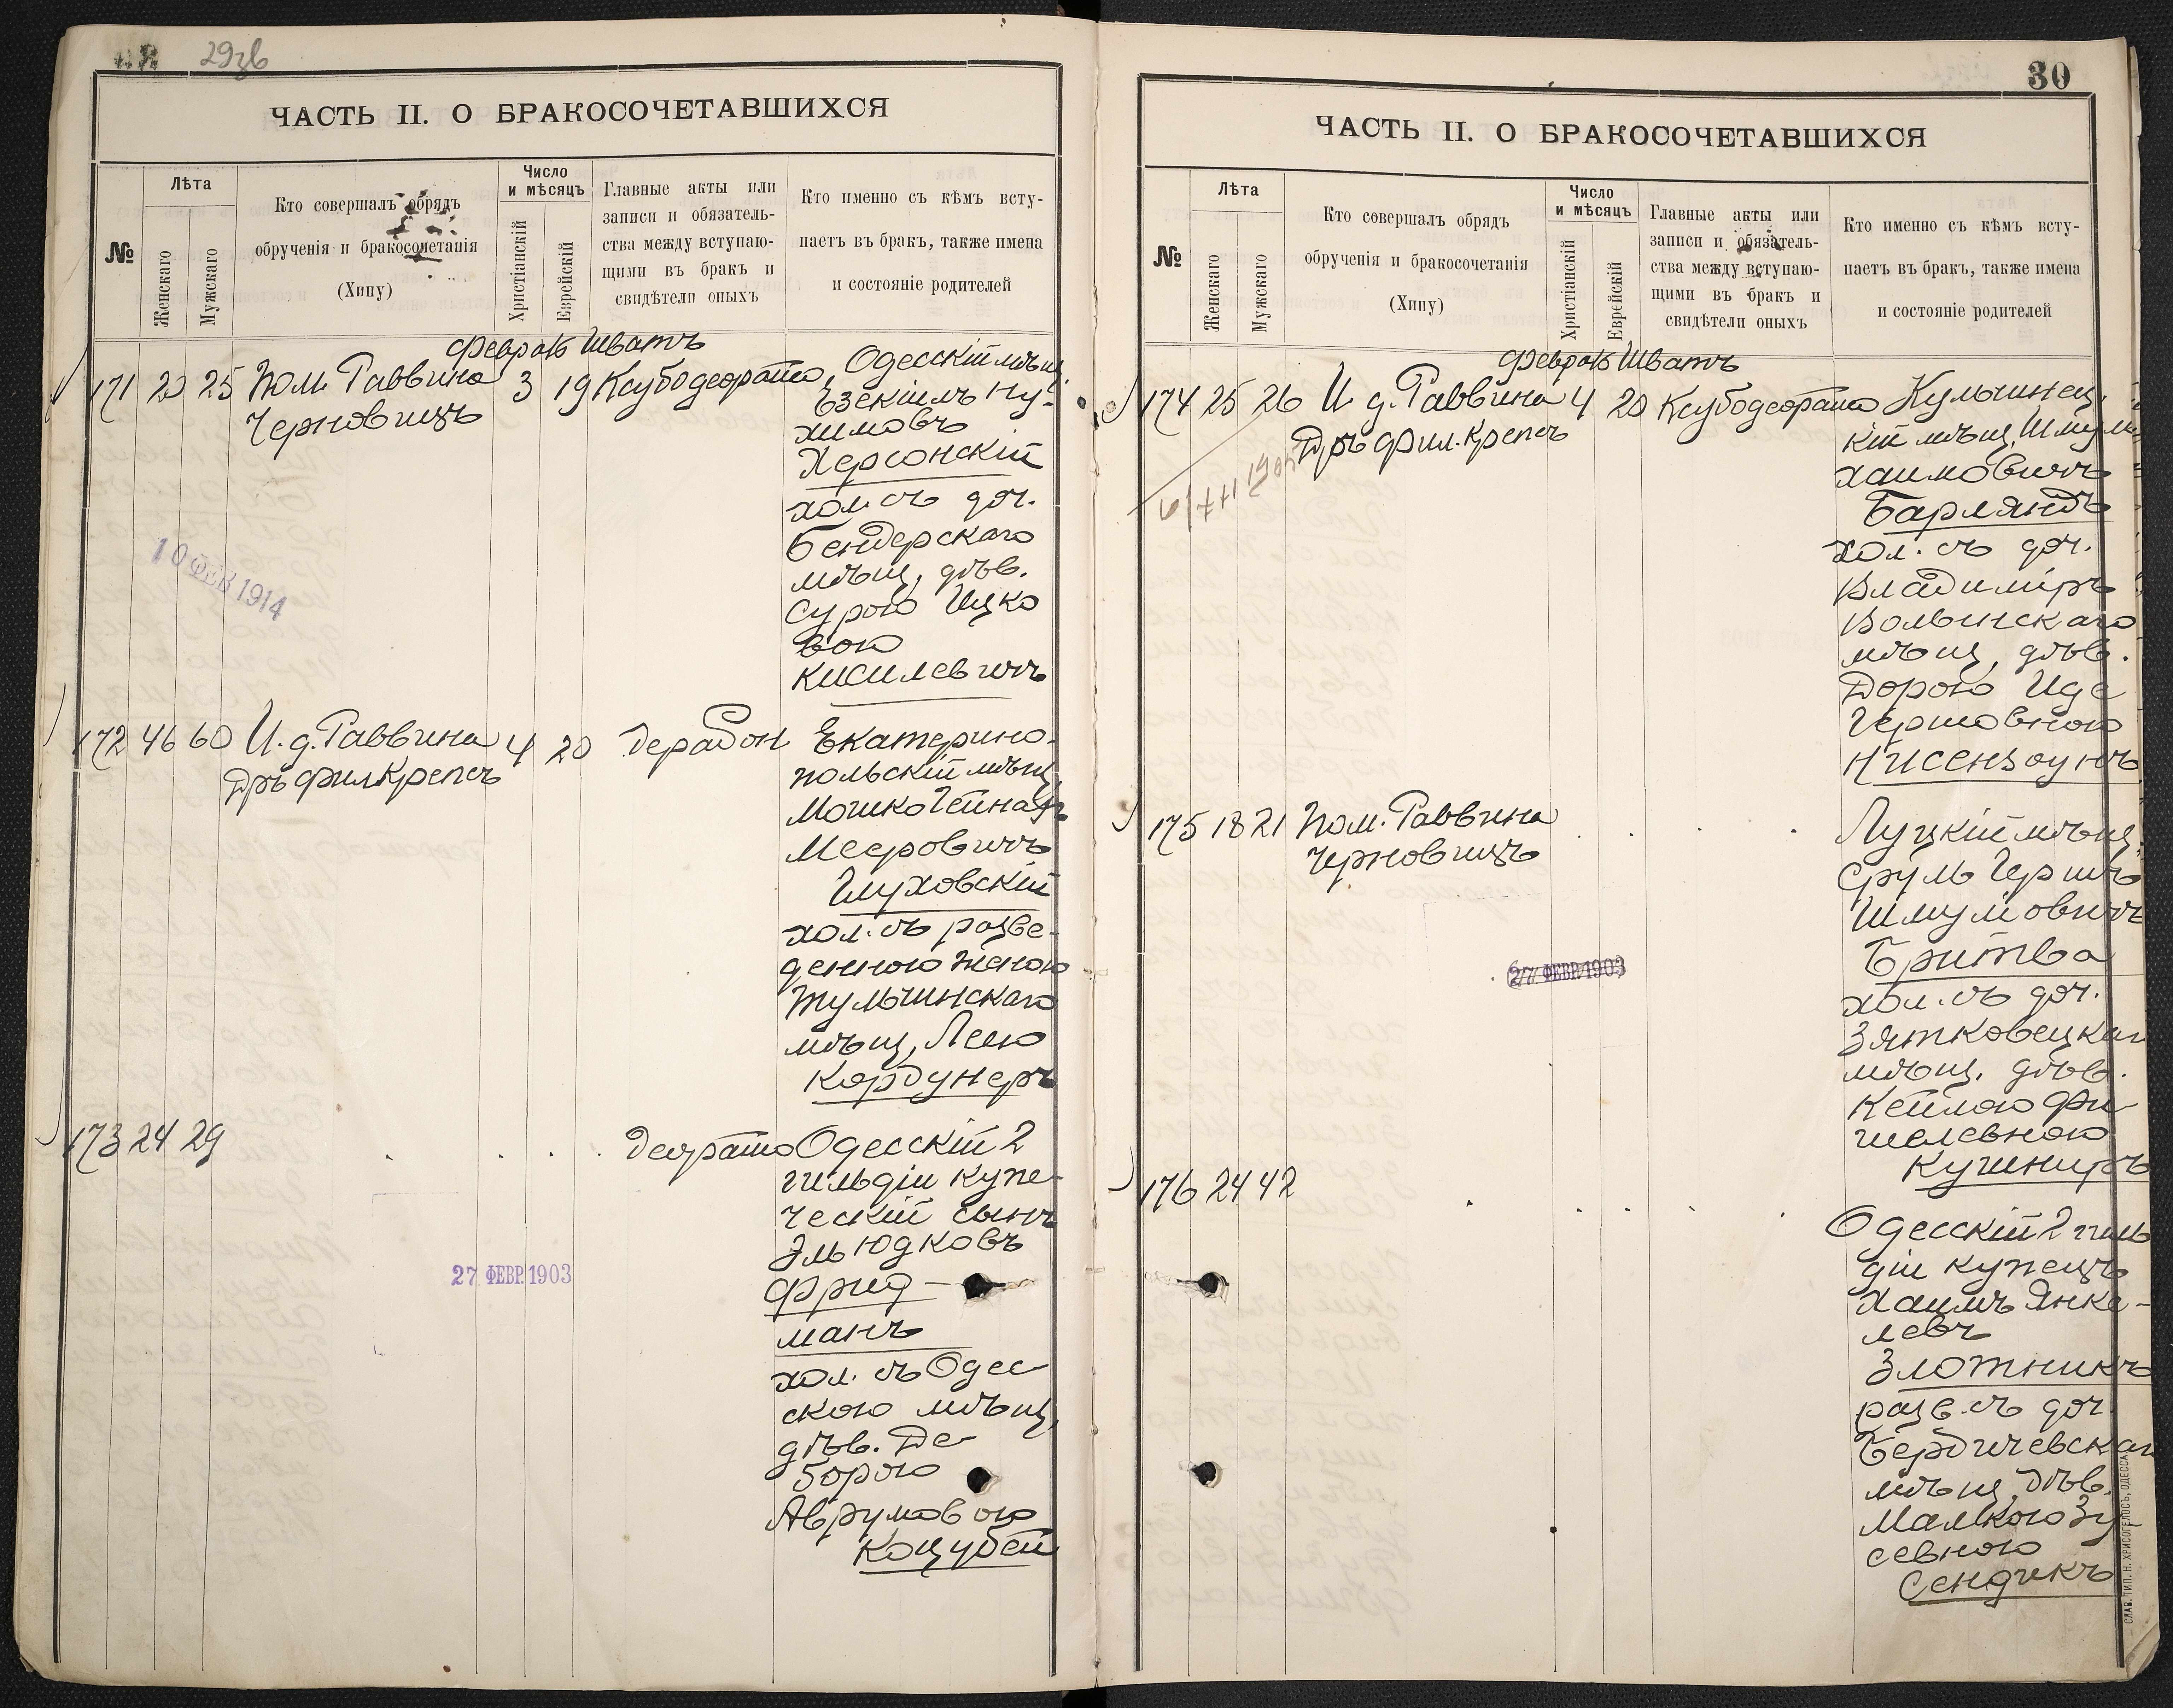 29зв
ЧАСТЬ II. О БРАКОСОЧЕТАВШИХСЯ
№
Лѣта
Женскаго
Мужскаго
Кто совершалъ обрядъ
обрученія и бракосочетанія
(Хипу)
Число
и мѣсяцъ
Христіанскій
Еврейскій
Главные акты или
записи и обязатель-
ства между вступаю-
щими въ бракъ и
свидѣтели оныхъ
Кто именно съ кѣмъ всту-
паетъ въ бракъ, также имена
и состояніе родителей
Шватъ
171 20 25 Пом. Раввина 3 19
Черновицъ
Одесскій мѣщ.
Езекіиль Ну-
химовъ
Херсонскій
хол. съ доч.
Бендерскаго
мѣщ, дѣв.
Сурою Ицко
вою
Кисилевичъ
10 ФЕВ 1914
172 46 60 И. д. Раввина 4 20
Дръ фил. Крепсъ
Екатерино-
польскій мѣщ.
Мошко
Мееровичъ
Глуховскій
хол. съ разве-
денною женою
Тульчинскаго
мѣщ, Леею
Кордунеръ
173 24 29
Одесскій 2
гильдіи купе-
ческій сынъ
Эль Юдковъ
Фрид-
манъ
хол. съ Одес-
скою мѣщ,
дѣв. Де-
борою
Аврумовою
Коцубей
27 ФЕВР. 1903
30
ЧАСТЬ II. О БРАКОСОЧЕТАВШИХСЯ
№
Лѣта
Женскаго
Мужскаго
Кто совершалъ обрядъ
обрученія и бракосочетанія
(Хипу)
Число
и мѣсяцъ
Христіанскій
Еврейскій
Главные акты или
записи и обязатель-
ства между вступаю-
щими въ бракъ и
свидѣтели оныхъ
Кто именно съ кѣмъ всту-
паетъ въ бракъ, также имена
и состояніе родителей
Шватъ
174 25 26 И. д. Раввина 4 20
Дръ фил. Крепсъ
Кульчинец
кій мѣщ.
Хаимовичъ
Барляндъ
хол. съ доч.
Владиміръ
Волынскаго
мѣщ, дѣв.
Дорою Иде
Гершовною
Нисензоунъ
175 18 21 Пом. Раввина
Черновицъ
Луцкій мѣщ.
Сруль Гершъ
Шмулiовичъ
Бритва
хол. съ доч.
Зятковецкаго
мѣщ. дѣв.
Кейлою Фи-
шелевною
Кушниръ
27 ФЕВР. 1903
176 24 42
Одесскій 2 гиль
діи купецъ
Хаимъ Янке-
левъ
Злотникъ
разв. съ доч.
Бердичевскаго
мѣщ, дѣв.
Малкою Зу
севною
Сендикъ
СЛАВ. ТИП. Н. ХРИСОГЕЛОСЪ, ОДЕССА